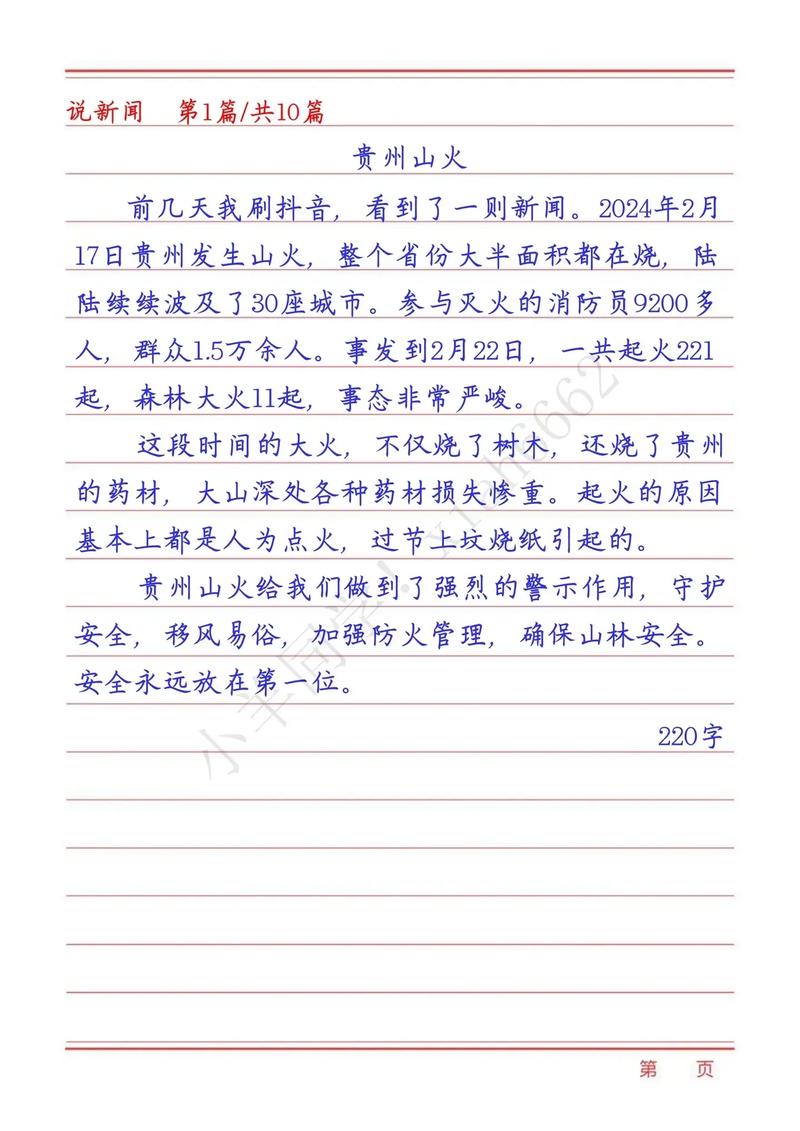 说新闻 第1篇/共10篇
贵州山火
前几天我刷抖音，看到了一则新闻。2024年2月
17日贵州发生山火，整个省份大半面积都在烧，陆
陆续续波及了30座城市。参与灭火的消防员9200多
人，群众1.5万余人。事发到2月22日，一共起火221
起，森林大火11起，事态非常严峻。
这段时间的大火，不仅烧了树木，还烧了贵州
的药材，大山深处各种药材损失惨重。起火的原因
基本上都是人为点火，过节上坟烧纸引起的。
贵州山火给我们做到了强烈的警示作用，守护
安全，移风易俗，加强防火管理，确保山林安全。
安全永远放在第一位。
220字
小羊同学！xiah6662
第 页